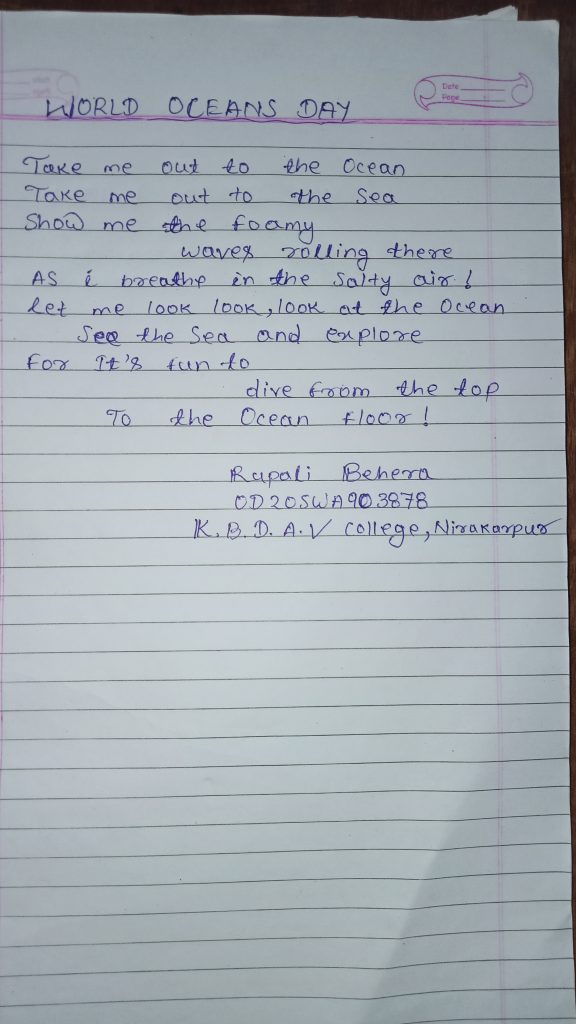 Date
Page
WORLD OCEANS DAY
Take me out to the Ocean
Take me out to the Sea
Show me the foamy
waves rolling there
As i breathe in the salty air!
Let me look look, look at the Ocean
See the Sea and explore
For It's fun to
dive from the top
To the Ocean floor!
Rupali Behera
OD20SWA903878
K.B.D.A.V College, Nirakarpur